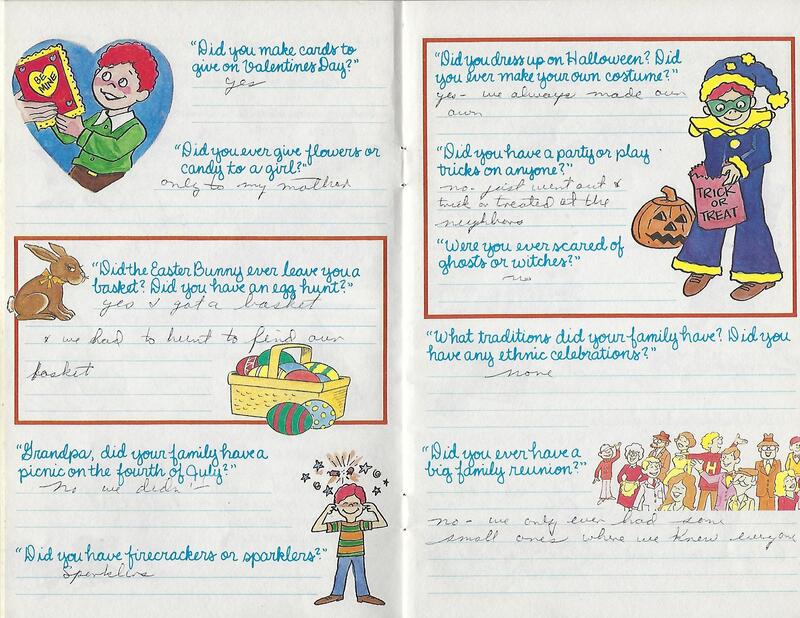 BE
MINE
"Did you make cards to
give on Valentines Day?"
yes
"Did you ever give flowers or
candy to a girl?"
only to my mother
"Did the Easter Bunny ever leave you a
basket? Did you have an egg hunt?"
yes I got a basket
& we had to hunt to find our
basket
"Grandpa, did your family have a
picnic on the fourth of July?"
No we didn't
"Did you have firecrackers or sparklers?"
Sparklers
"Did you dress up on Halloween? Did
you ever make your own costume?"
yes - we always made our
own
"Did you have a party or play
tricks on anyone?"
no - just went out &
trick or treated at the
neighbors
TRICK
OR
TREAT
"Were you ever scared of
ghosts or witches?"
no
"What traditions did your family have? Did you
have any ethnic celebrations?"
none
"Did you ever have a
big family reunion?"
H
no - we only ever had some
small ones where we knew everyone